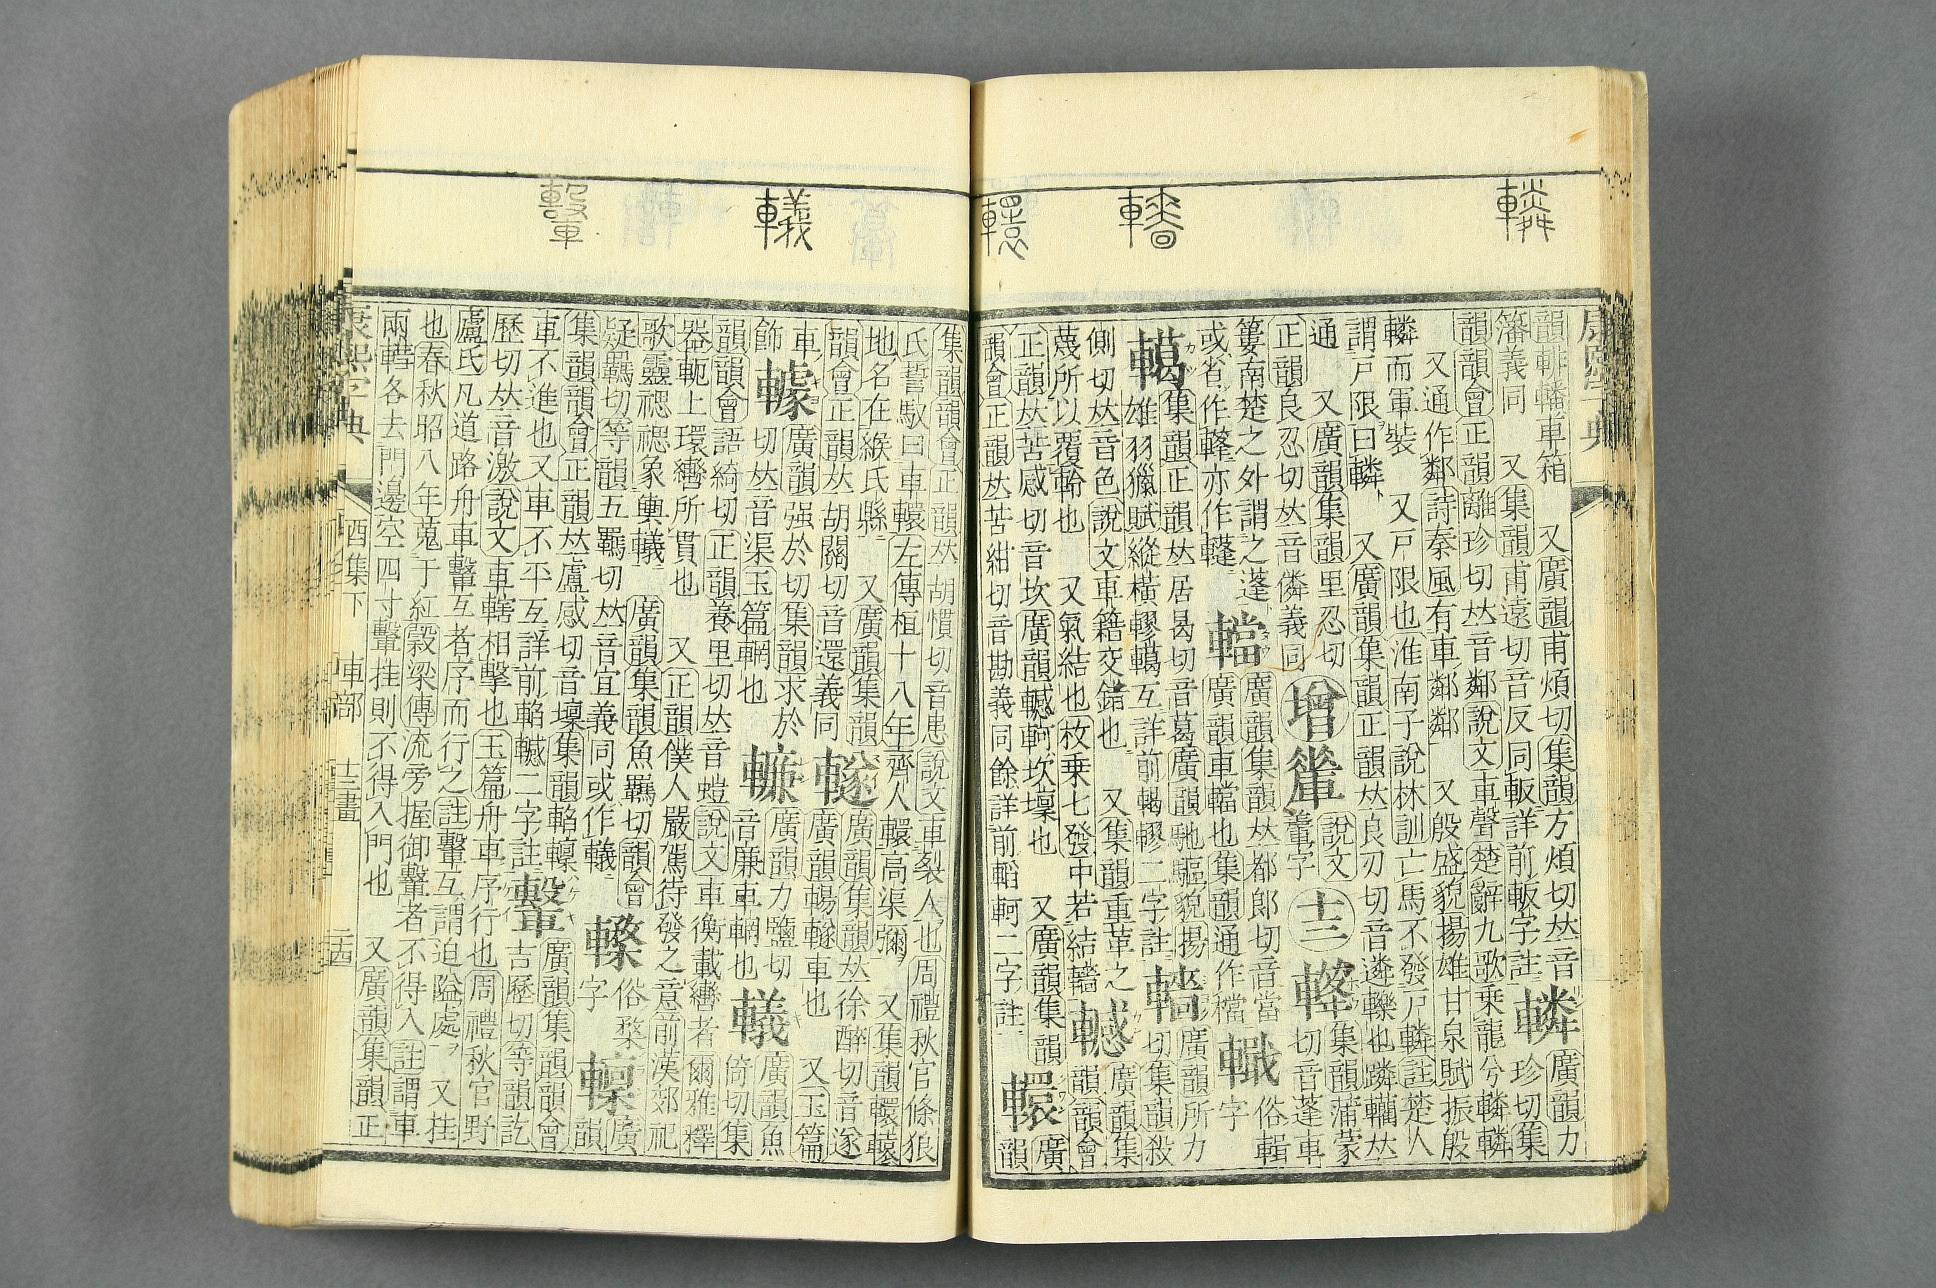 轔 轖 轘 轙 轚
康熙字典
韻䡟轓車箱　又廣韻甫煩切集韻方煩切𠀤音
籓義同　又集韻甫遠切音反同軬詳前軬字註
轔
廣韻力
珍切集
韻韻會正韻離珍切𠀤音鄰說文車聲楚辭九歌乘龍兮轔轔
又通作鄰詩秦風有車鄰鄰　又殷盛貌揚雄甘泉賦振殷
轔而軍裝　又戸限也淮南子說林訓亡馬不發戸轔註楚人
謂戸限曰轔　又廣韻集韻正韻𠀤良刃切音遴轢也蹸轥𠀤
通　又廣韻集韻里忍切
正韻良忍切𠀤音嶙義同
增
說文
字
十三
集韻蒲蒙
切音蓬車
簍南楚之外謂之篷
或省作䡫亦作
廣韻集韻𠀤都郎切音當
廣韻車也集韻通作檔
俗輯
字
轕
集韻正韻𠀤居曷切音葛廣韻馳驅貌揚
雄羽獵賦縱橫轇轕互詳前輵轇二字註
轖
廣韻所力
切集韻殺
側切𠀤音色說文車籍交錯也　又集韻重革之
蔑所以覆軨也　又氣結也枚乘七發中若結轖
轗
廣韻集
韻韻會
正韻𠀤苦感切音坎廣韻轗軻坎壈也　又廣韻集韻
韻會正韻𠀤苦紺切音勘義同餘詳前輡軻二字註
轘
廣
韻
集韻韻會正韻𠀤胡慣切音患說文車裂人也周禮秋官條狼
氏誓馭曰車轘左傳桓十八年齊人轘高渠彌　又集韻轘轅
地名在緱氏縣　又廣韻集韻
韻會正韻𠀤胡關切音還義同
廣韻集韻𠀤徐醉切音遂
廣韻車也　又玉篇
車
飾
廣韻强於切集韻求於
切𠀤音渠玉篇輞也
廣韻力鹽切
音廉車輞也
轙
廣韻魚
倚切集
韻韻會語綺切正韻養里切𠀤音螘說文車衡載轡者爾雅釋
器軛上環轡所貫也　又正韻僕人嚴駕待發之意前漢郊祀
歌靈禗禗象輿轙　廣韻集韻魚羈切韻會
疑羈切等韻五羈切𠀤音宜義同或作
俗
字
廣
韻
集韻韻會正韻𠀤盧感切音壈集韻輡
車不進也又車不平互詳前輡轗二字註
轚
廣韻集韻韻會
吉歷切等韻訖
歷切𠀤音激說文車轄相擊也玉篇舟車序行也周禮秋官野
廬氏凡道路舟車轚互者序而行之註轚互謂迫隘處　又挂
也春秋昭八年蒐于紅穀梁傳流旁握御轚者不得入註謂車
兩轊各去門邊空四寸轚挂則不得入門也　又廣韻集韻正
康熙字典　酉集下　車部　十三畫